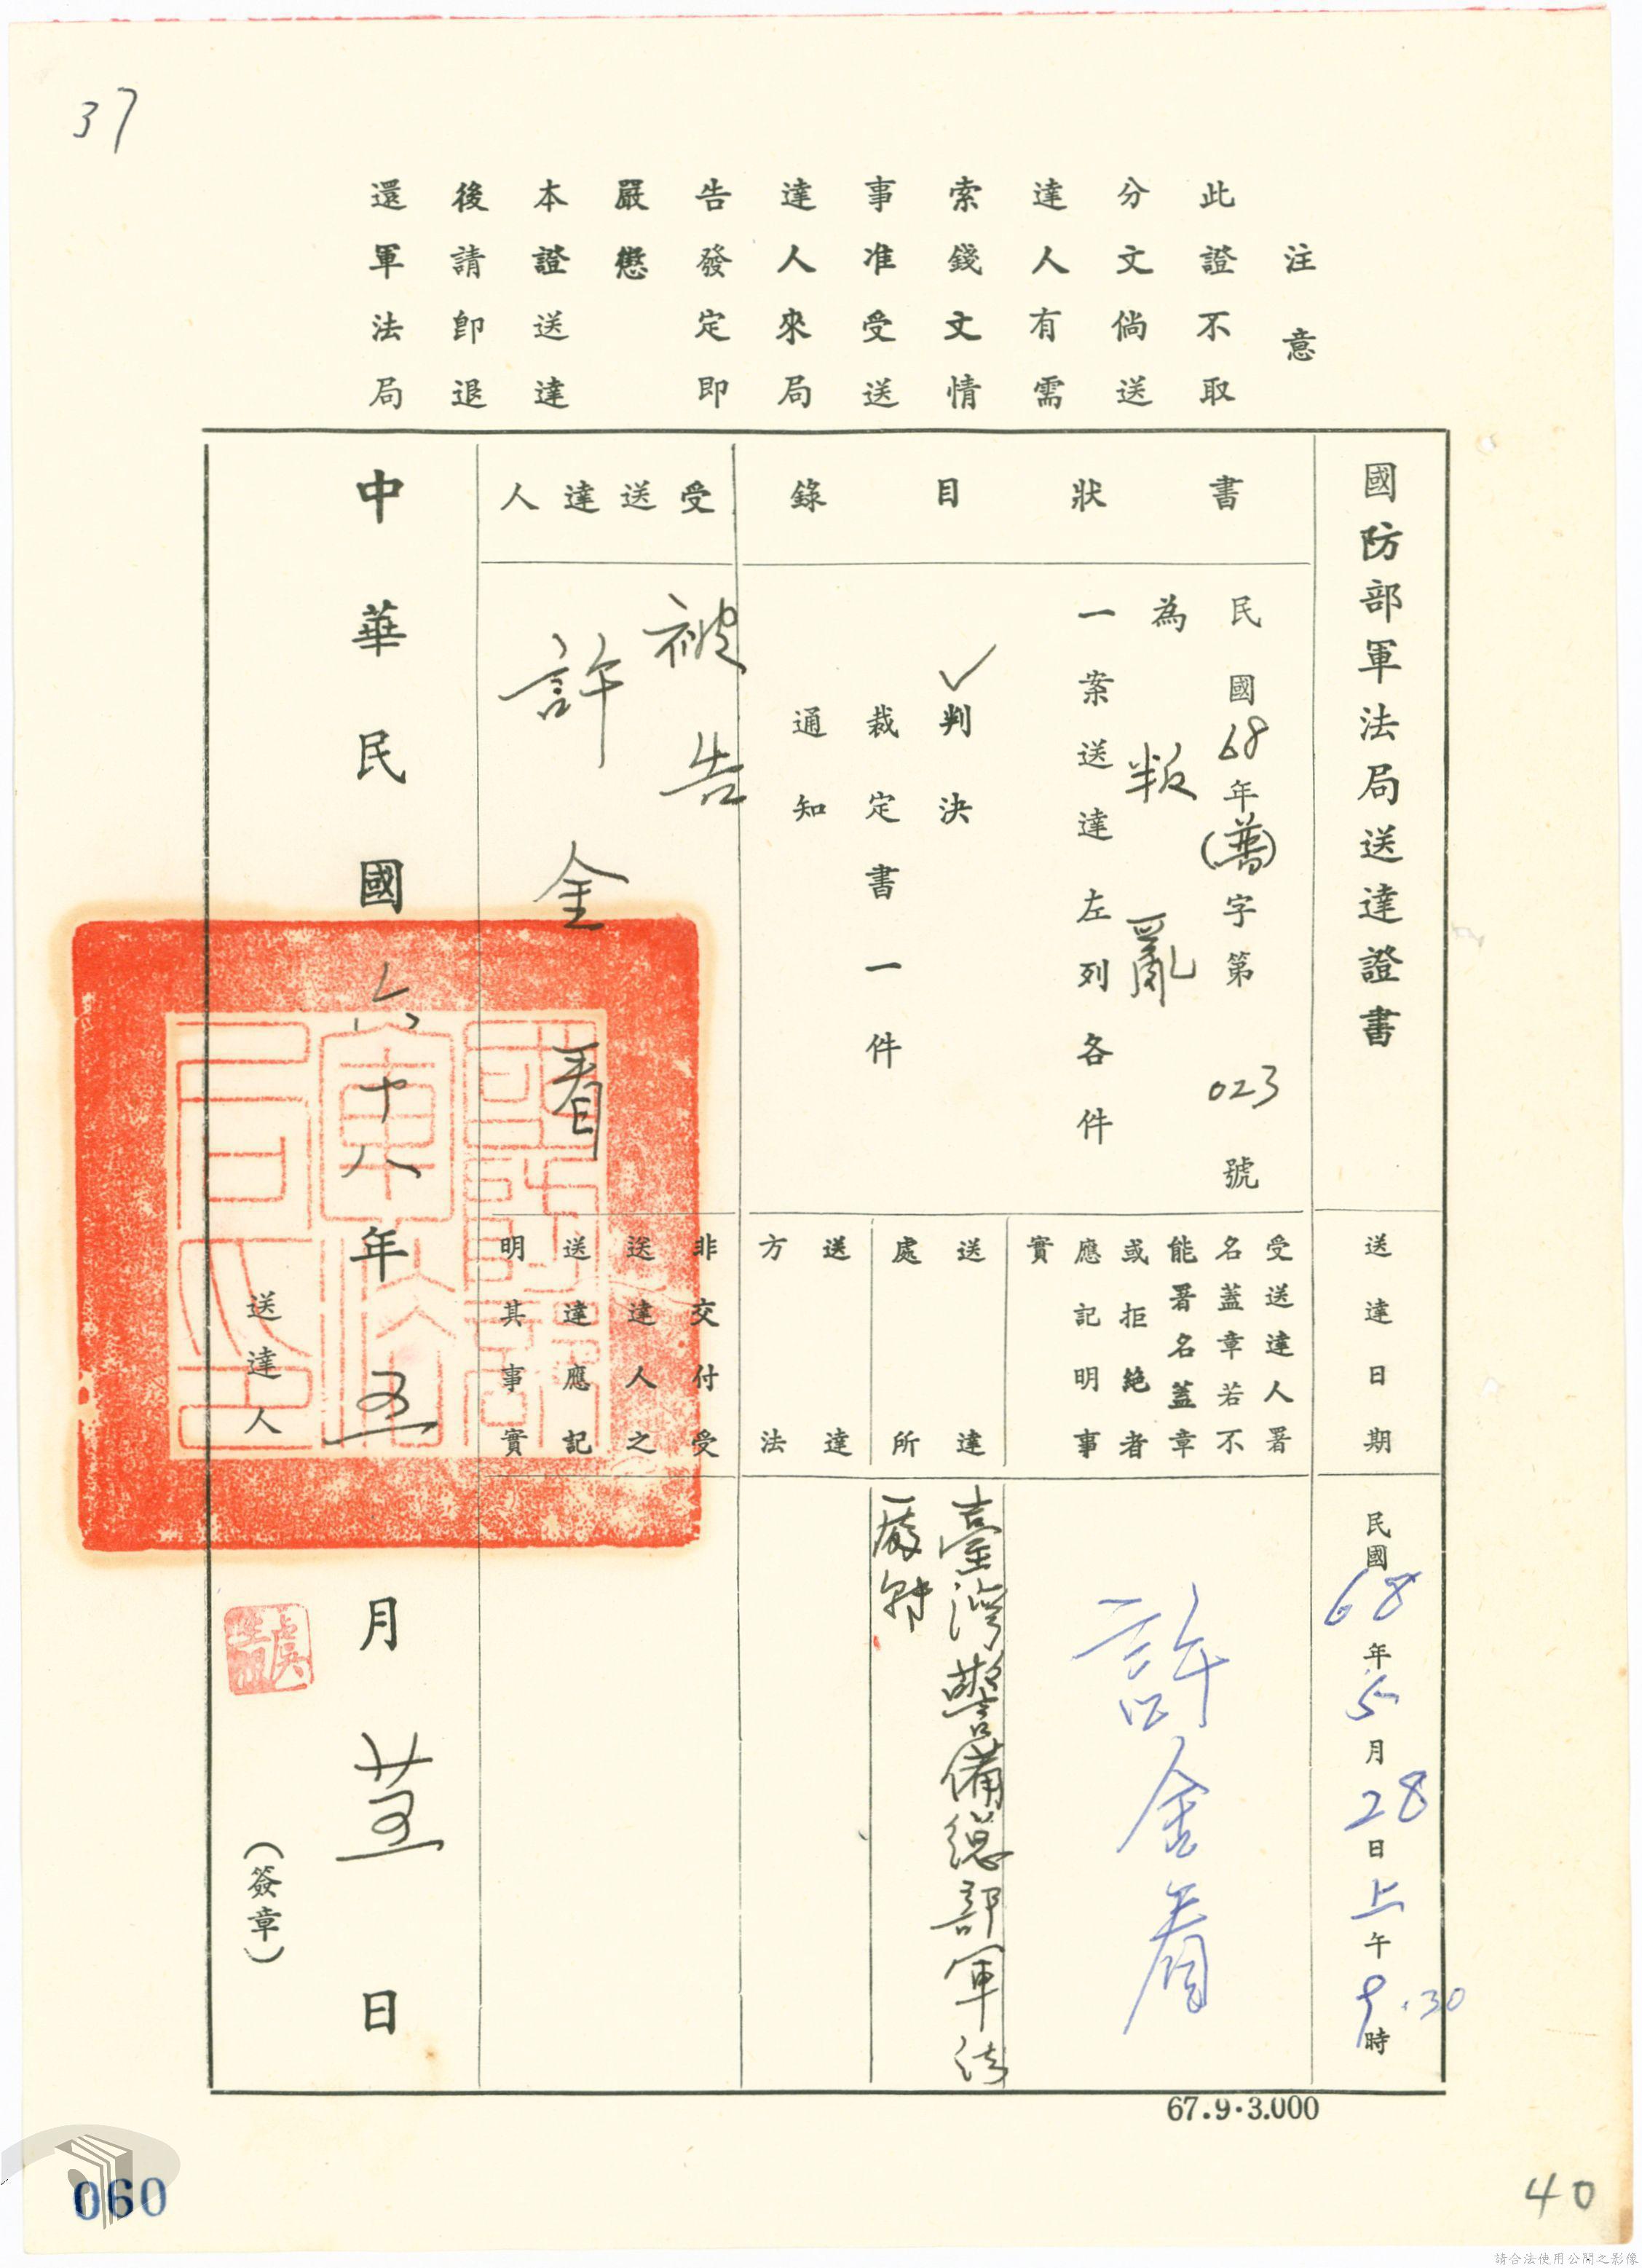 37
注意
此證不取
分文倘送
達人有需
索錢文情
事准受送
達人來局
告發定即
嚴懲
本證送達
後請卽退
還軍法局
國防部軍法局送達證書
書狀目錄
民國68年(普)字第023號
為叛亂
一案送達左列各件
✓判決
裁定書一件
通知
受送達人
被告
許金看
送達日期
民國68年5月28日上午9.30時
受送達人署
名蓋章若不
能署名蓋章
或拒絶者
應記明事
實
許金看
送達
處所
臺灣警備總部軍法
送達
方法
非交付受
送達人之
送達應記
明其事實
中華民國六十八年五月廿五日
國防部
軍法局
之印
送達人
(簽章)
67.9.3.000
060
40
請合法使用公開之影像